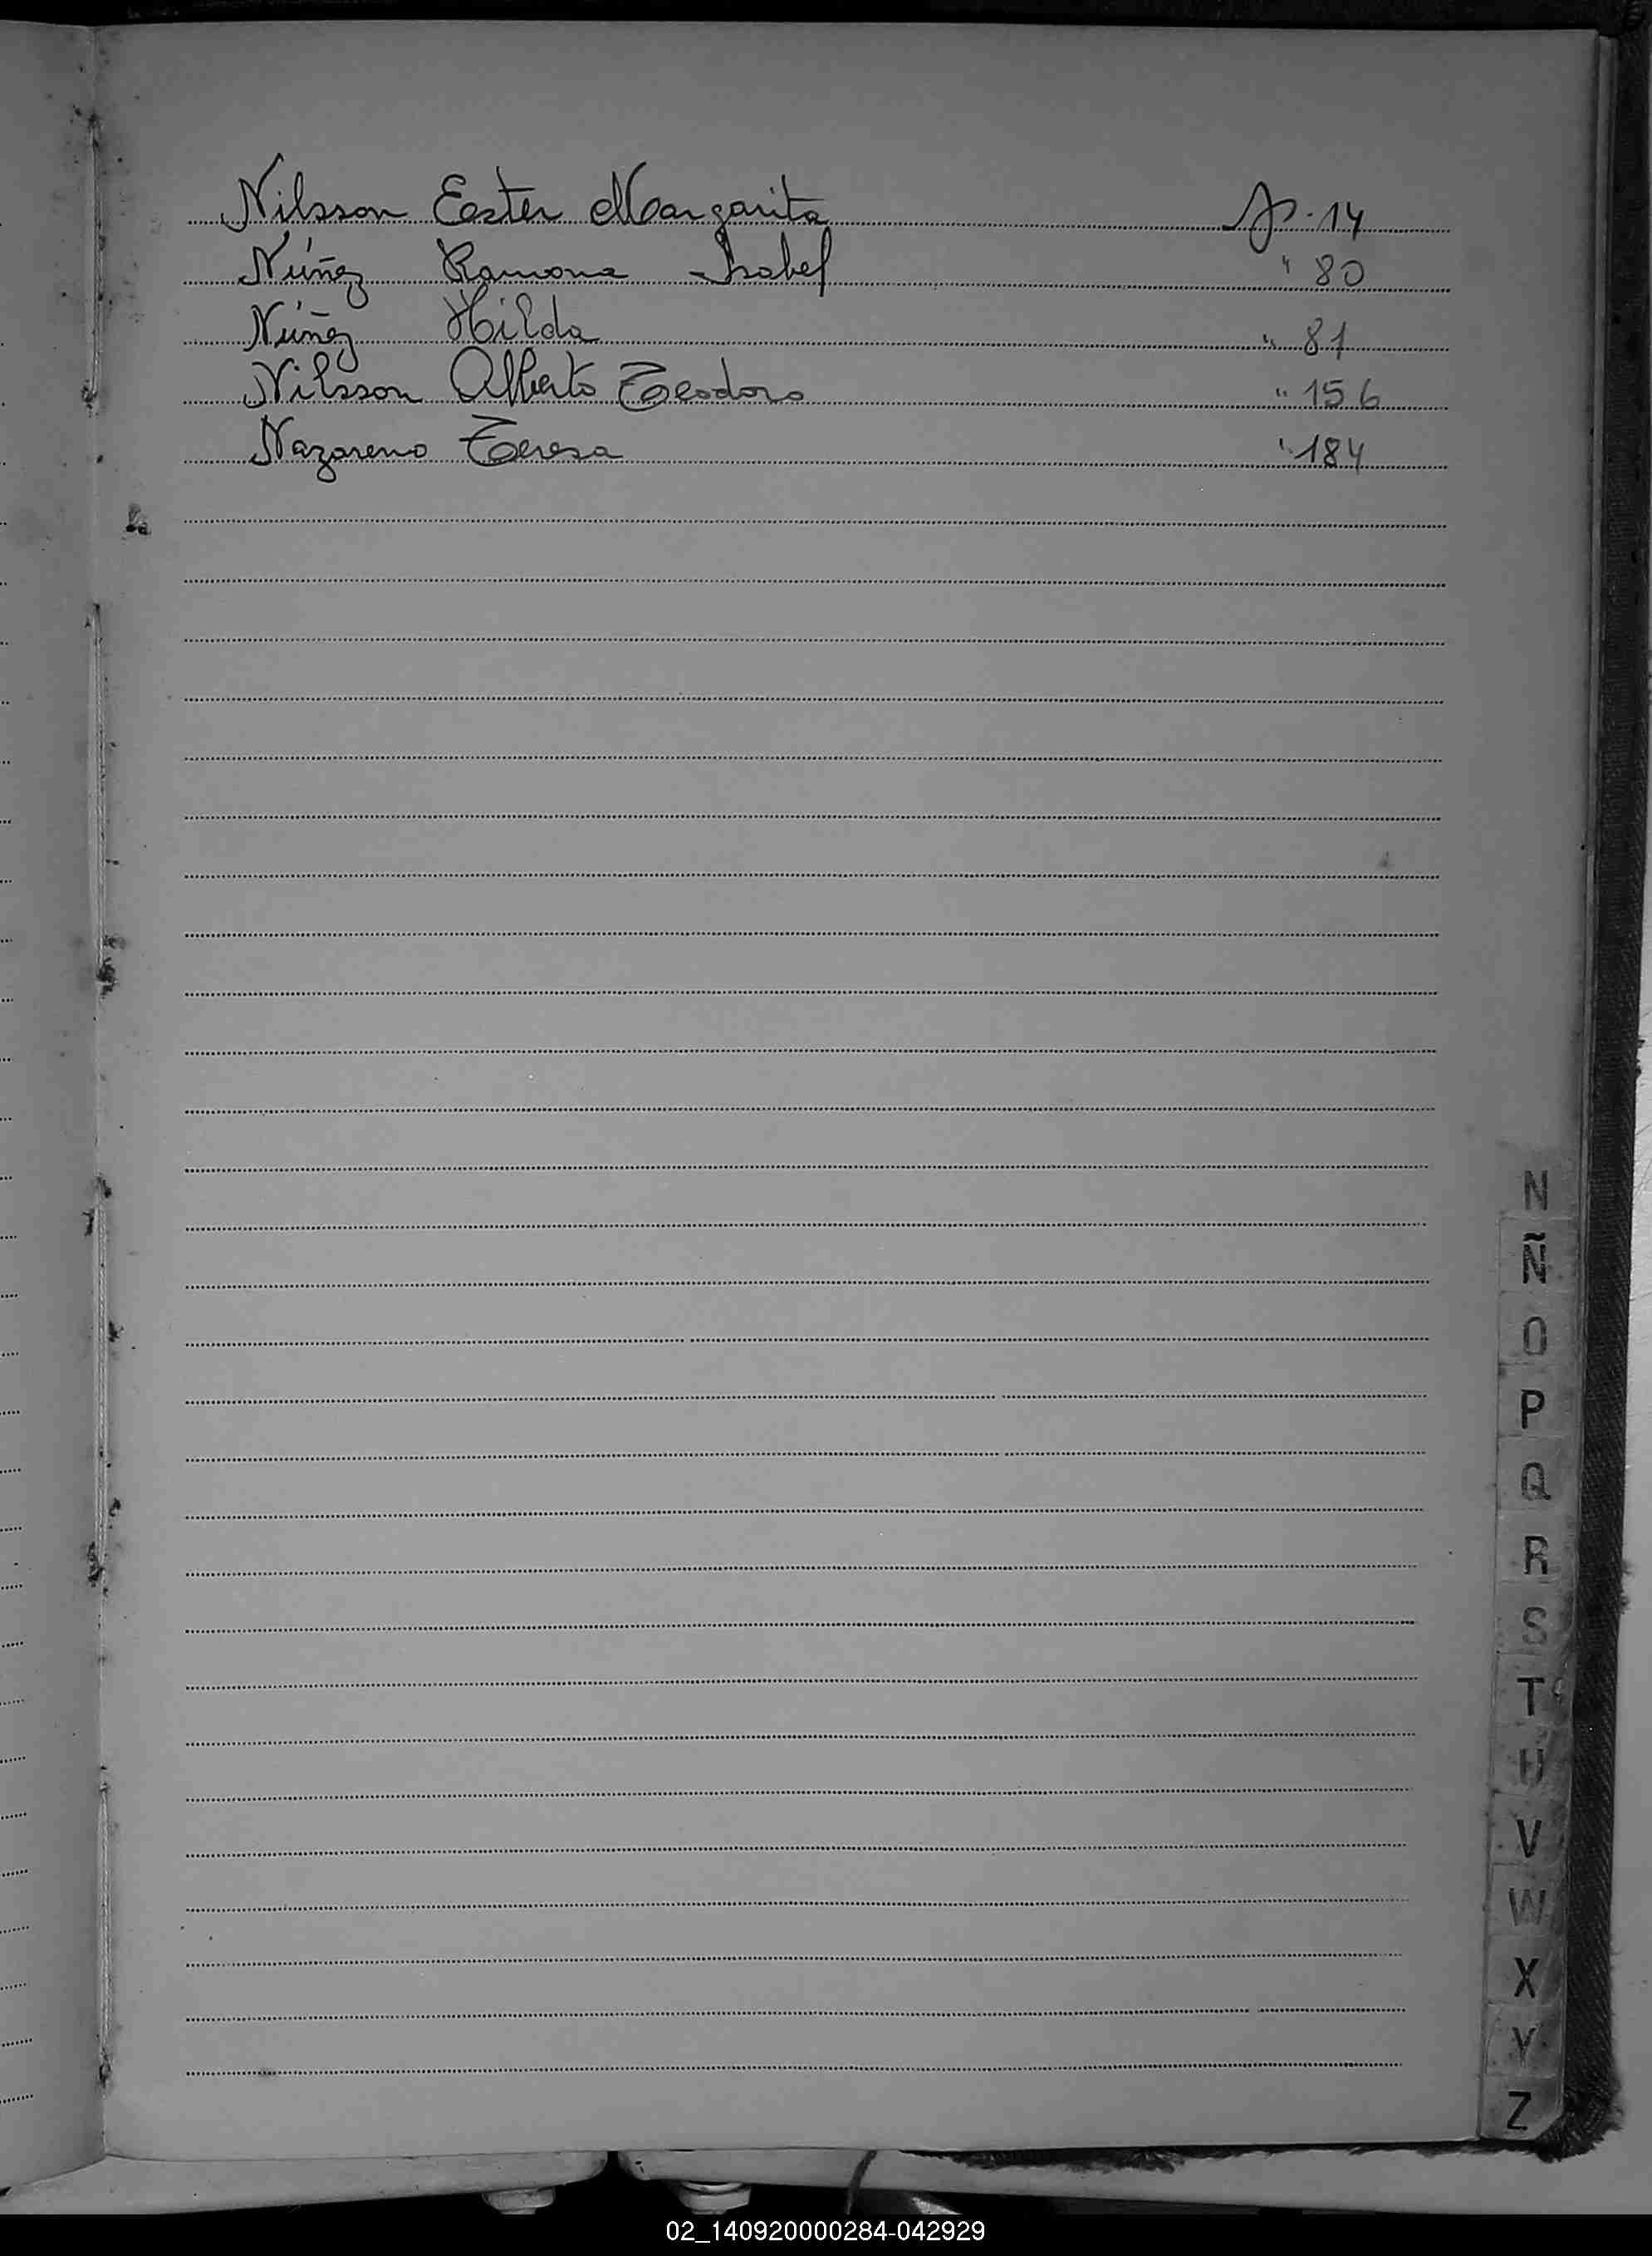 Nilsson Ester Margarita p. 14
Núñez Ramona Isabel " 80
Núñez Hilda " 81
Nilsson Alberto Teodoro " 156
Nazareno Teresa " 184
N
Ñ
O
P
Q
R
S
T
U
V
W
X
Y
Z
02_140920000284-042929